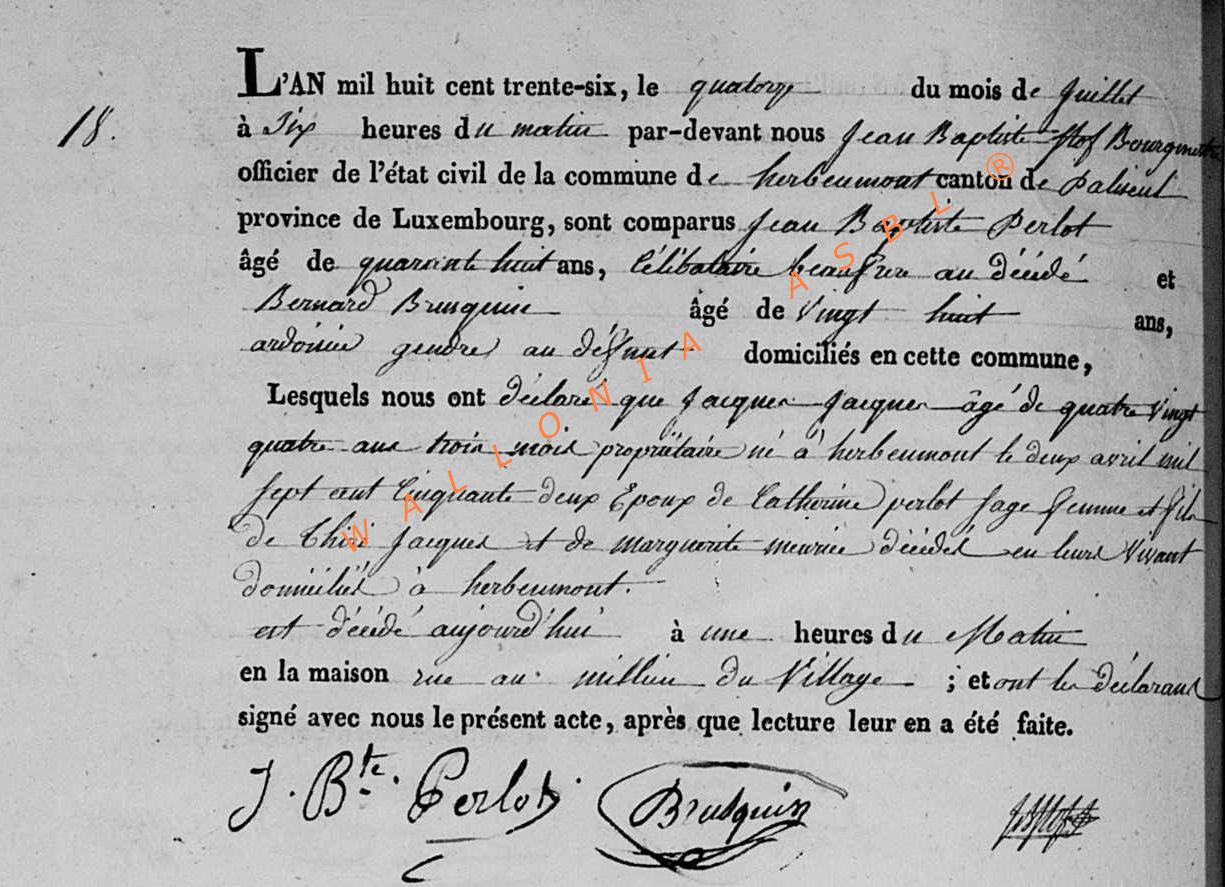 L'AN mil huit cent trente-six, le quatorze du mois de Juillet
18.
à Six heures du matin par-devant nous Jean Baptiste Bourgmestre
officier de l'état civil de la commune de herbeumont canton de Paliseul
province de Luxembourg, sont comparus Jean Baptiste Perlot
âgé de quarante huit ans, Célibataire beaufrere au décédé et
Bernard Brusquin âgé de Vingt huit ans,
gendre au défunt domiciliés en cette commune,
Lesquels nous ont déclaré que Jacques Jacques âgé de quatre Vingt
quatre ans trois mois propriétaire né à herbeumont le deux avril mil
Sept cent Cinquante deux Epoux de Catherine perlot Sage femme et fils
de Jacques et de marguerite décédés en leurs Vivant
domiciliés à herbeumont.
est décédé aujourd'hui à une heures du Matin
en la maison rue au millieu du Village ; et ont les déclarans
signé avec nous le présent acte, après que lecture leur en a été faite.
J. Bte. Perlot Brusquin
WALLONIA ASBL ®